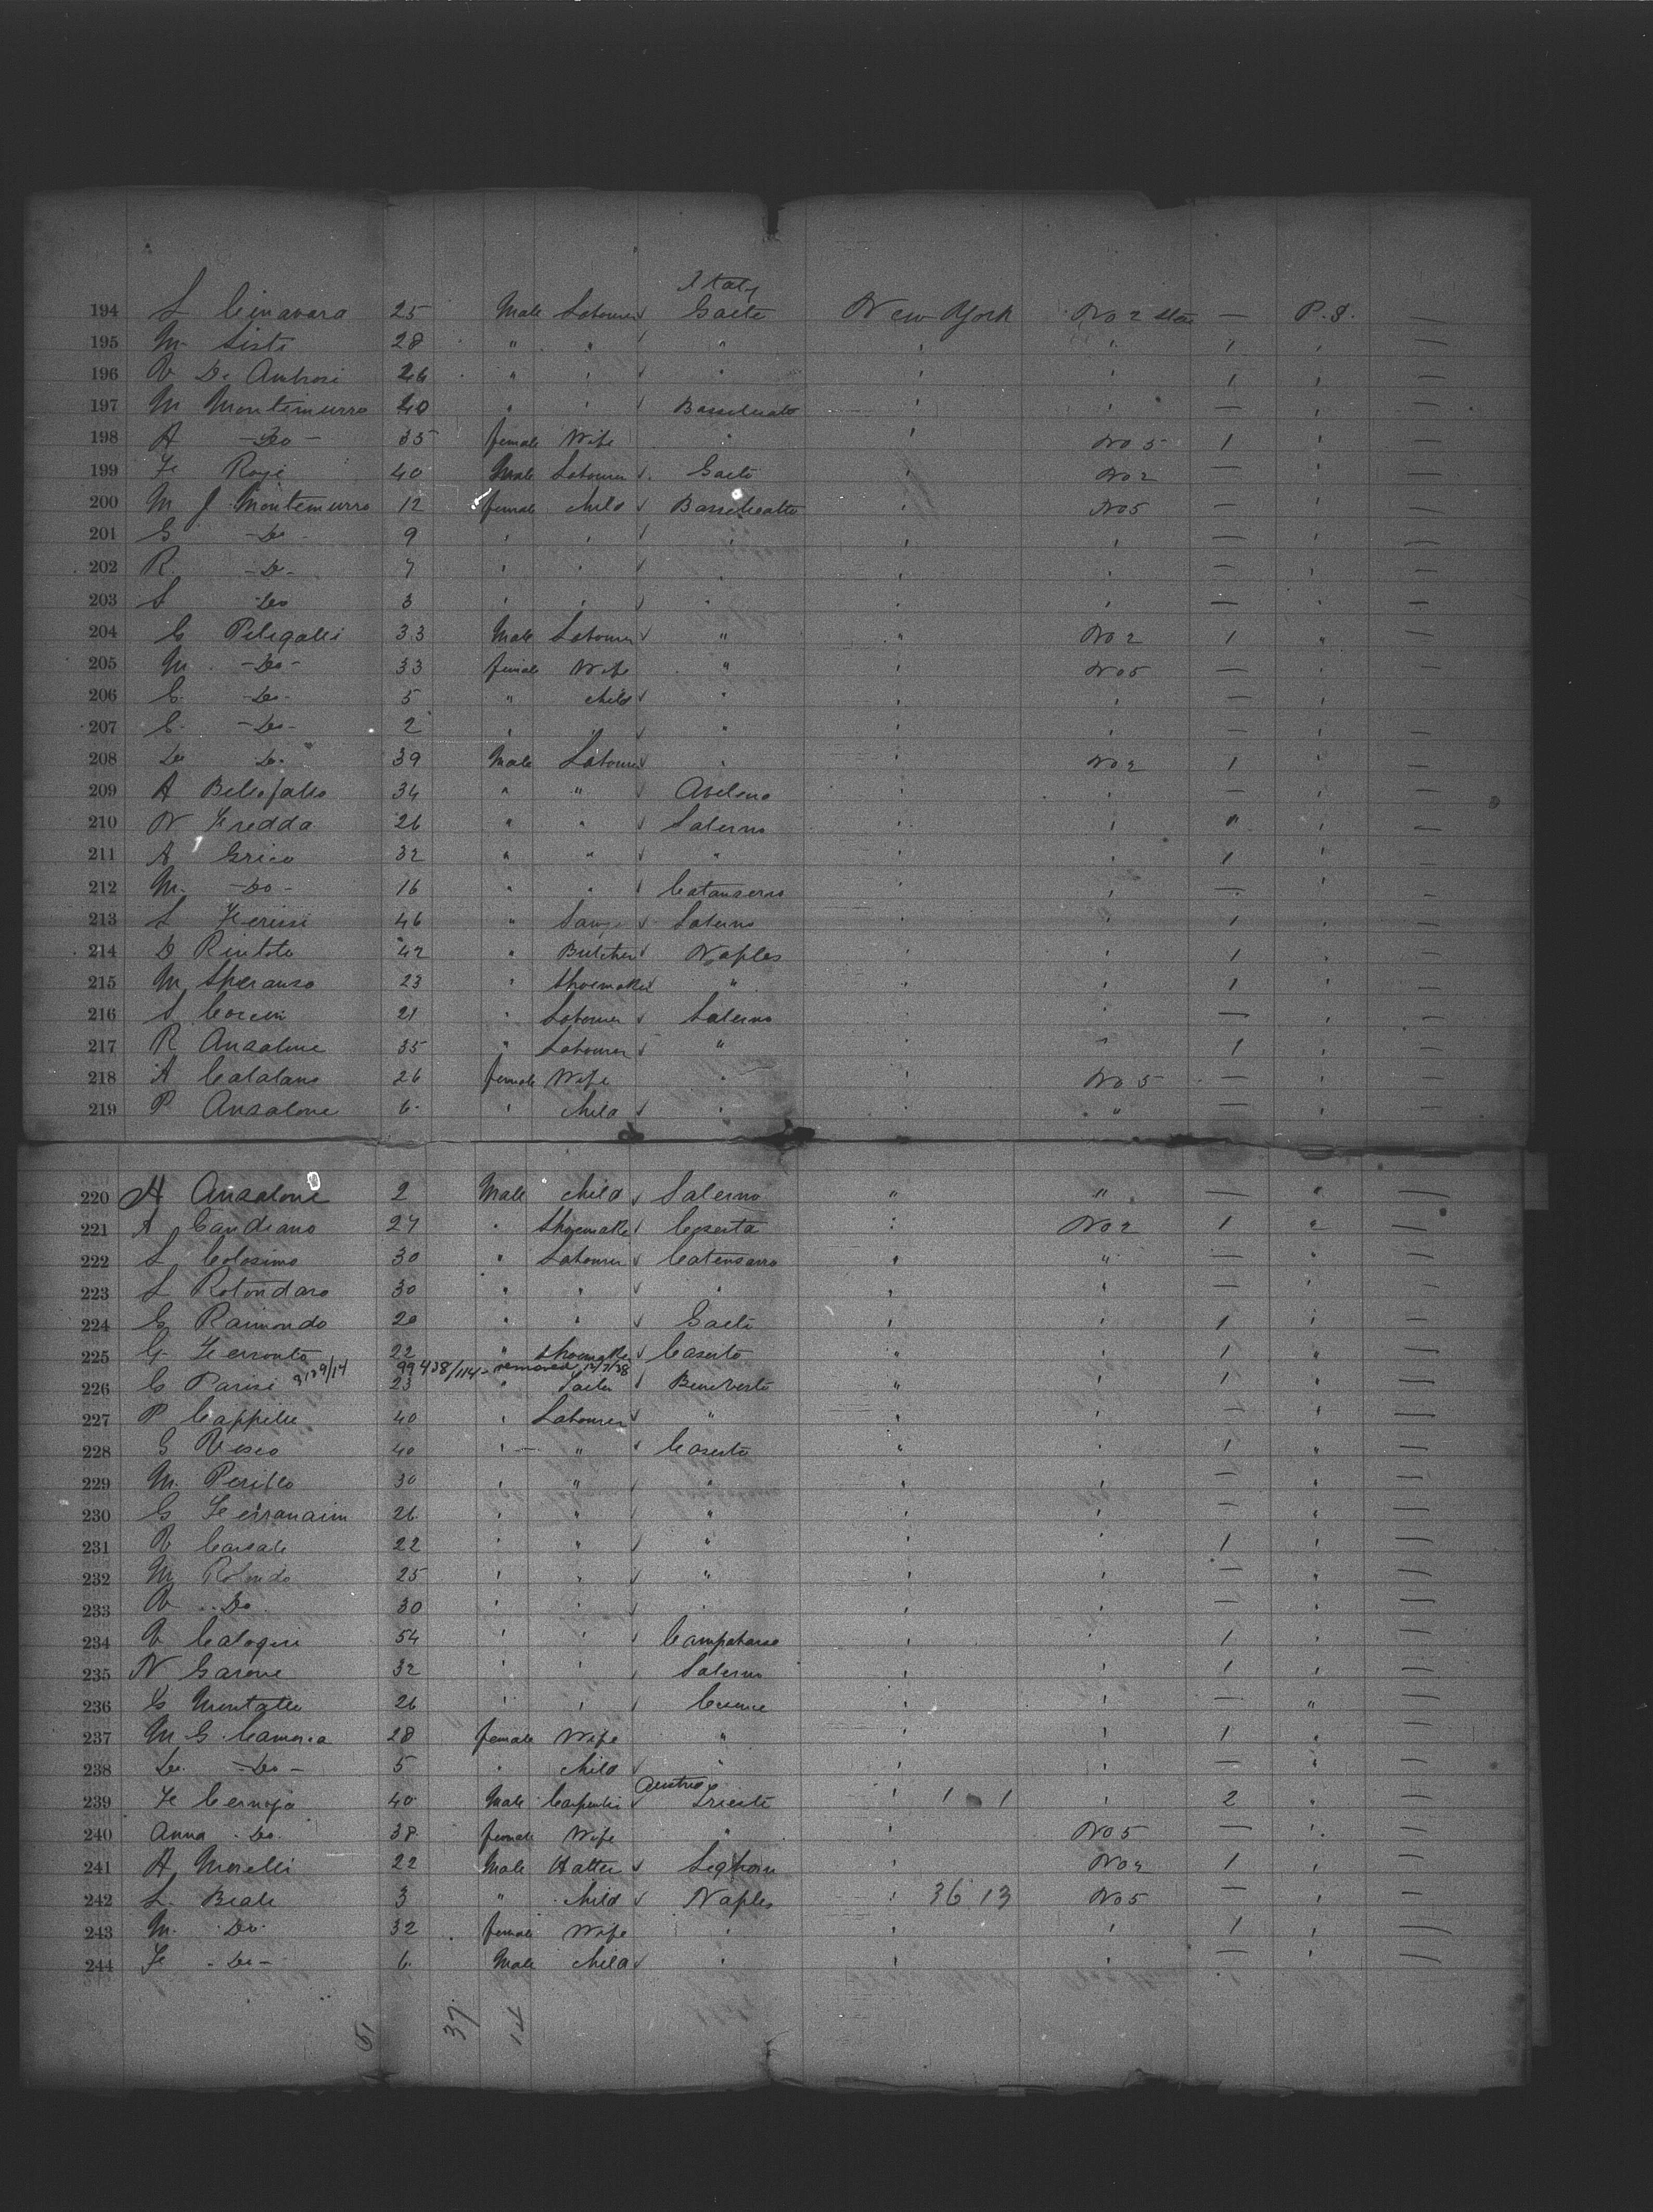 Italy
194 S Cinavara 25 Male Labourer √ Gaeta New York No 2 Stee — P.S. —
195 M. Siste 28 " " √ " " " 1 " —
196 V De Ambrosi 26 " " √ " " " 1 " —
197 M Montemurro 40 " " √ Bassilicato " " — " —
198 A —Do— 35 female Wife " " No 5 1 " —
199 F Roge 40 Male Labourer √ Gaeto " No 2 — " —
200 M J Montemurro 12 female child √ Bassilicatto " No 5 — " —
201 G —Do— 9 " " √ " " " — " —
202 R. —Do— 7 " " √ " " " — " —
203 S Do 3 " " √ " " " — " —
204 G Pelegalli 33 Male Labourer √ " " No 2 1 " —
205 M. —Do— 33 female Wife " " No 5 — " —
206 C —Do— 5 " child √ " " " — " —
207 C. —Do— 2 " " √ " " " — " —
208 Do Do. 39 Male Labourer √ " " No 2 1 " —
209 A 34 " " √ Avelono " " — " —
210 N Fredda 26 " " √ Salerno " " " " —
211 A Grico 32 " " √ " " " 1 " —
212 M. —Do— 16 " " √ Catanserno " " — " —
213 S 46 " √ Salerno " " 1 " —
214 D Rintoto 42 " Butcher √ Naples " " 1 " —
215 M Speranso 23 " Shoemaker √ " " " 1 " —
216 S 21 " Labourer √ Salerno " " — " —
217 R Ansalone 35 " Labourer √ " " " 1 " —
218 A Catalano 26 female Wife " " No 5 — " —
219 P Ansalone 6 " child √ " " " — " —
220 A Ansalone 2 Male child √ Salerno " " — " —
221 A Candiano 27 " Shoemaker √ Caserta " No 2 1 " —
222 S Colosimo 30 " Labourer √ Catensarro " " — " —
223 S Rotondaro 30 " " √ " " " — " —
224 G Raimondo 20 " " √ Gaeto " " 1 " —
225 G. Ferronto 22 " Shoemaker √ Caserto " " 1 " —
99438/114 - removed 12/7/38
226 G Parisi 23 " √ Beneventi " " 1 " —
227 P Cappelle 40 " Labourer √ " " " — " —
228 G Vesco 40 " — " √ Caserto " " 1 " —
229 M. Perillo 30 " " √ " " " — " —
230 G Ferranaim 26 " " √ " " " — " —
231 V Carsale 22 " " √ " " " 1 " —
232 M Rotondo 25 " " √ " " " — " —
233 V Do 30 " " √ " " " — " —
234 V Calogeri 54 " " √ Campobasso " " 1 " —
235 N Garone 32 " " √ Salerno " " 1 " —
236 G Montalli 26 " " √ " " — " —
237 M. G. Camoria 28 female Wife " " " 1 " —
238 Do. —Do— 5 " child √ " " " — " —
Austria
239 F Cernoja 40 Male Carpenter Trieste " 1 1 " 2 " —
240 Anna Do. 38 female Wife " " No 5 — " —
241 A Morelli 22 Male Hatter √ Leghorn " No 2 1 " —
242 L. Beale 3 " child √ Naples " 36 13 No 5 — " —
243 M. Do. 32 female Wife " " " 1 " —
244 F —Do— 6 Male child √ " " " — " —
61 37 14